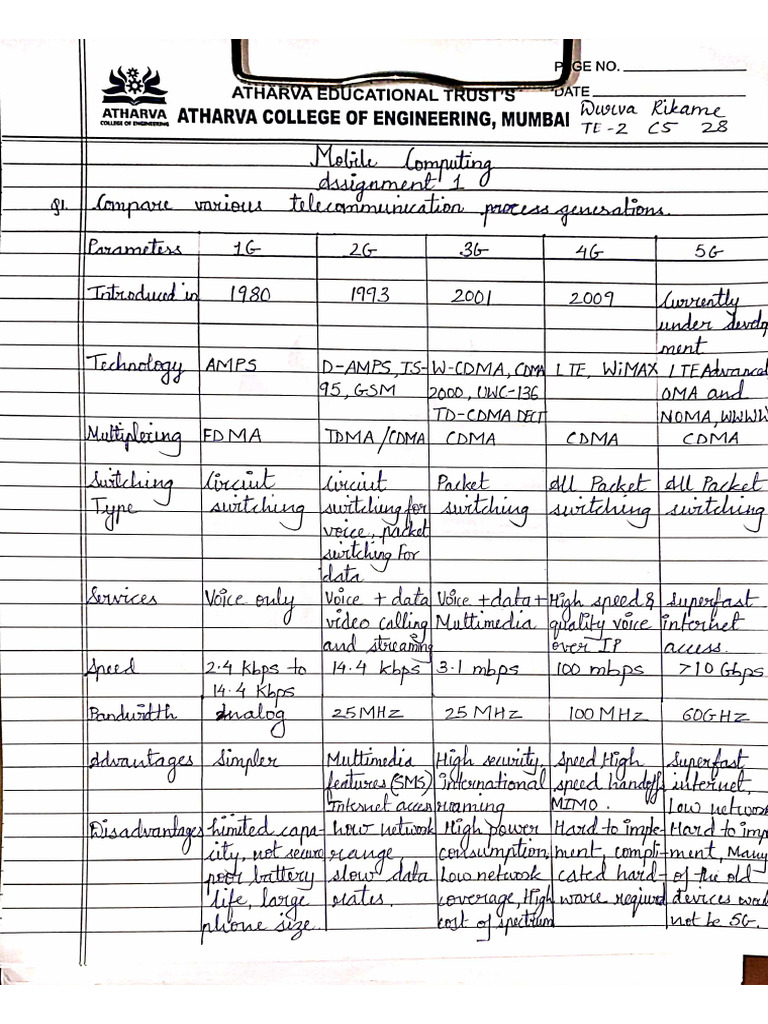 PAGE NO.
DATE
ATHARVA EDUCATIONAL TRUST'S
ATHARVA COLLEGE OF ENGINEERING, MUMBAI
ATHARVA
COLLEGE OF ENGINEERING
Rikame
TE-2 C5 28
Mobile Computing
Assignment 1
Q1. Compare various telecommunication process generations.
Parameters 1G 2G 3G 4G 5G
Introduced in 1980 1993 2001 2009 Currently
under develop
ment
Technology AMPS D-AMPS, IS- W-CDMA, CDMA LTE, WiMAX LTE Advanced
95, GSM 2000, UWC-136 OMA and
TD-CDMA DECT NOMA, WWWW
Multiplexing FDMA TDMA/CDMA CDMA CDMA CDMA
Switching Circuit Circuit Packet All Packet All Packet
Type switching switching for switching switching switching
voice, packet
switching for
data
Services Voice only Voice + data Voice + data + High speed & Superfast
video calling Multimedia quality voice internet
and streaming over IP access.
Speed 2.4 Kbps to 14.4 kbps 3.1 mbps 100 mbps >10 Gbps
14.4 Kbps
Bandwidth Analog 25 MHz 25 MHz 100 MHz 60GHz
Advantages Simpler Multimedia High security, Speed High Superfast
features (SMS) international speed handoffs internet,
Internet access roaming MIMO. Low network
Disadvantages Limited capa- Low network High power Hard to imple- Hard to imp
city, not secure range, consumption, ment, compli- ment, Many
poor battery slow data Low network cated hard- of the old
life, large rates. coverage, High ware required devices
phone size. cost of spectrum not be 5G.